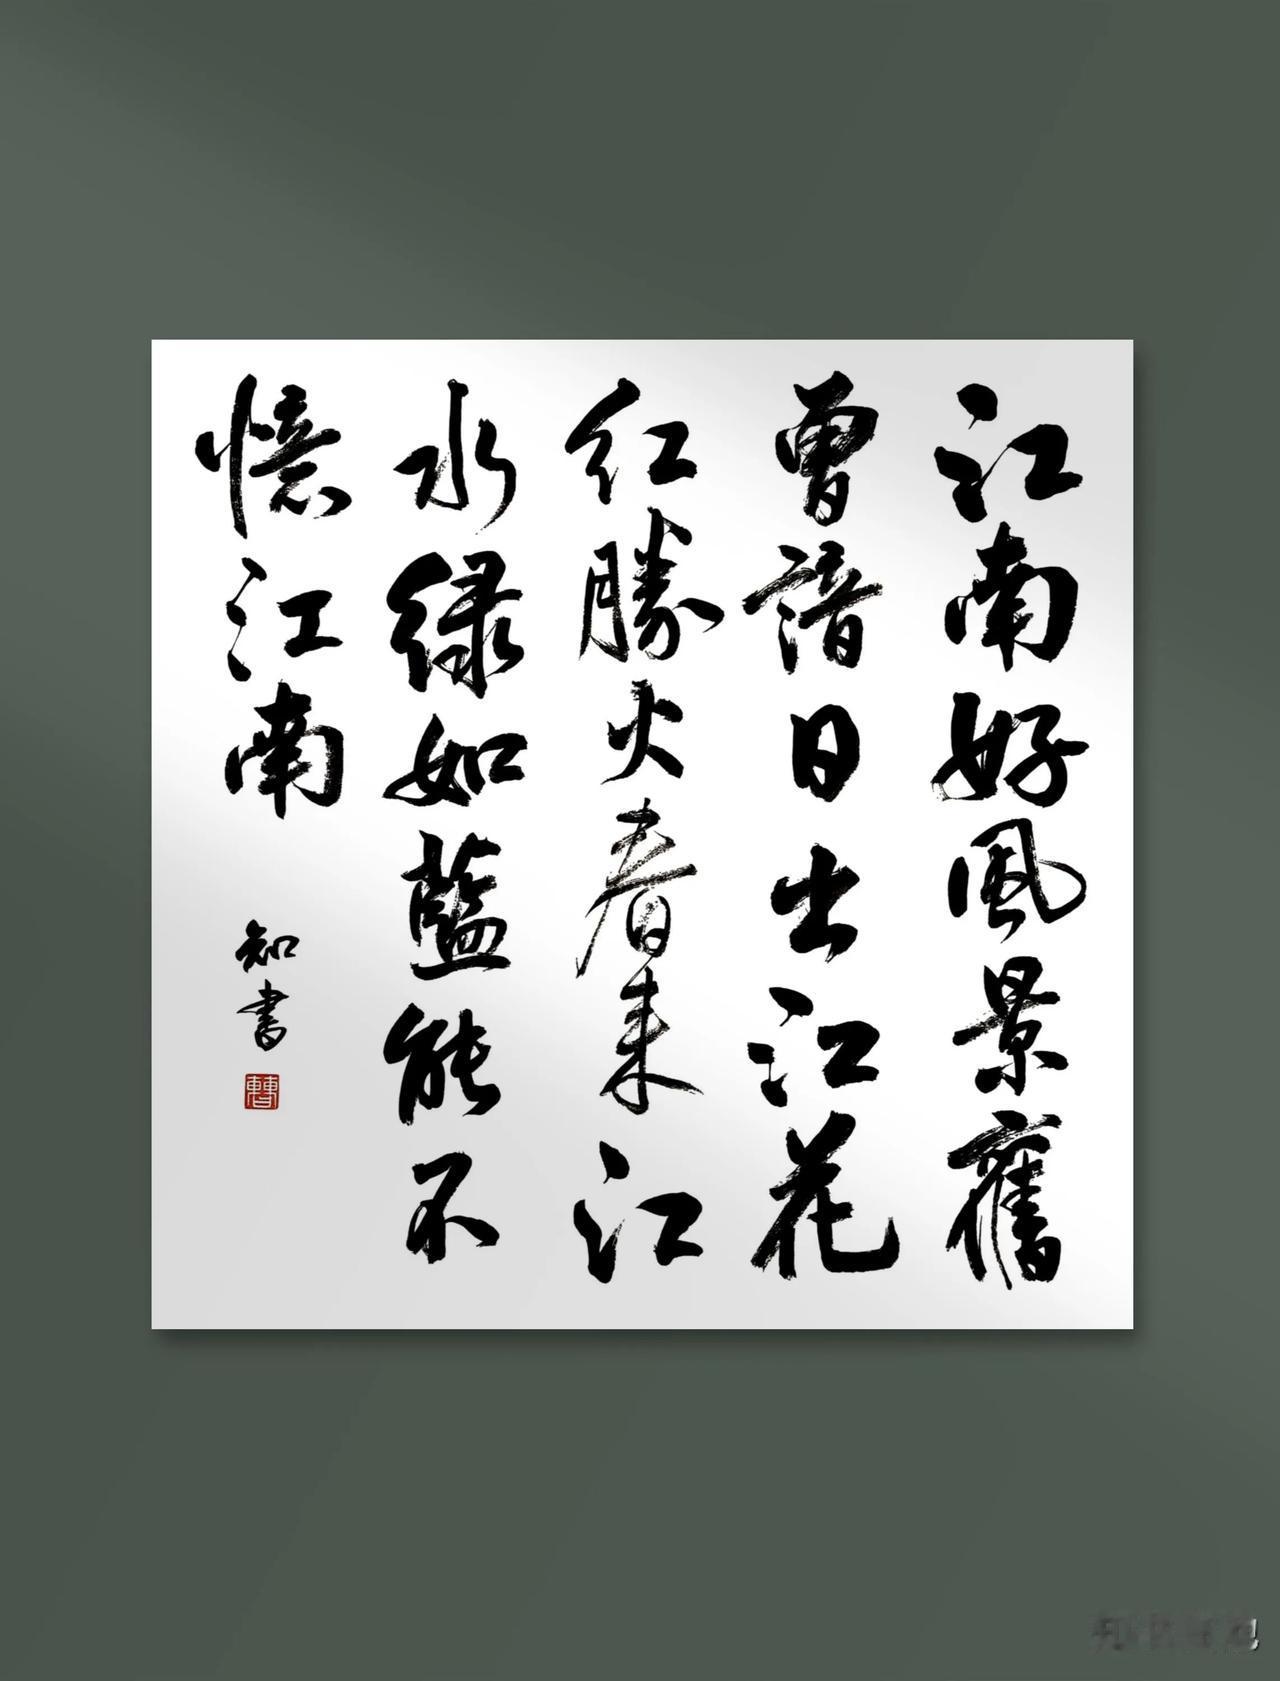 江南好風景舊
曾諳日出江花
红勝火春来江
水绿如藍能不
憶江南
知書